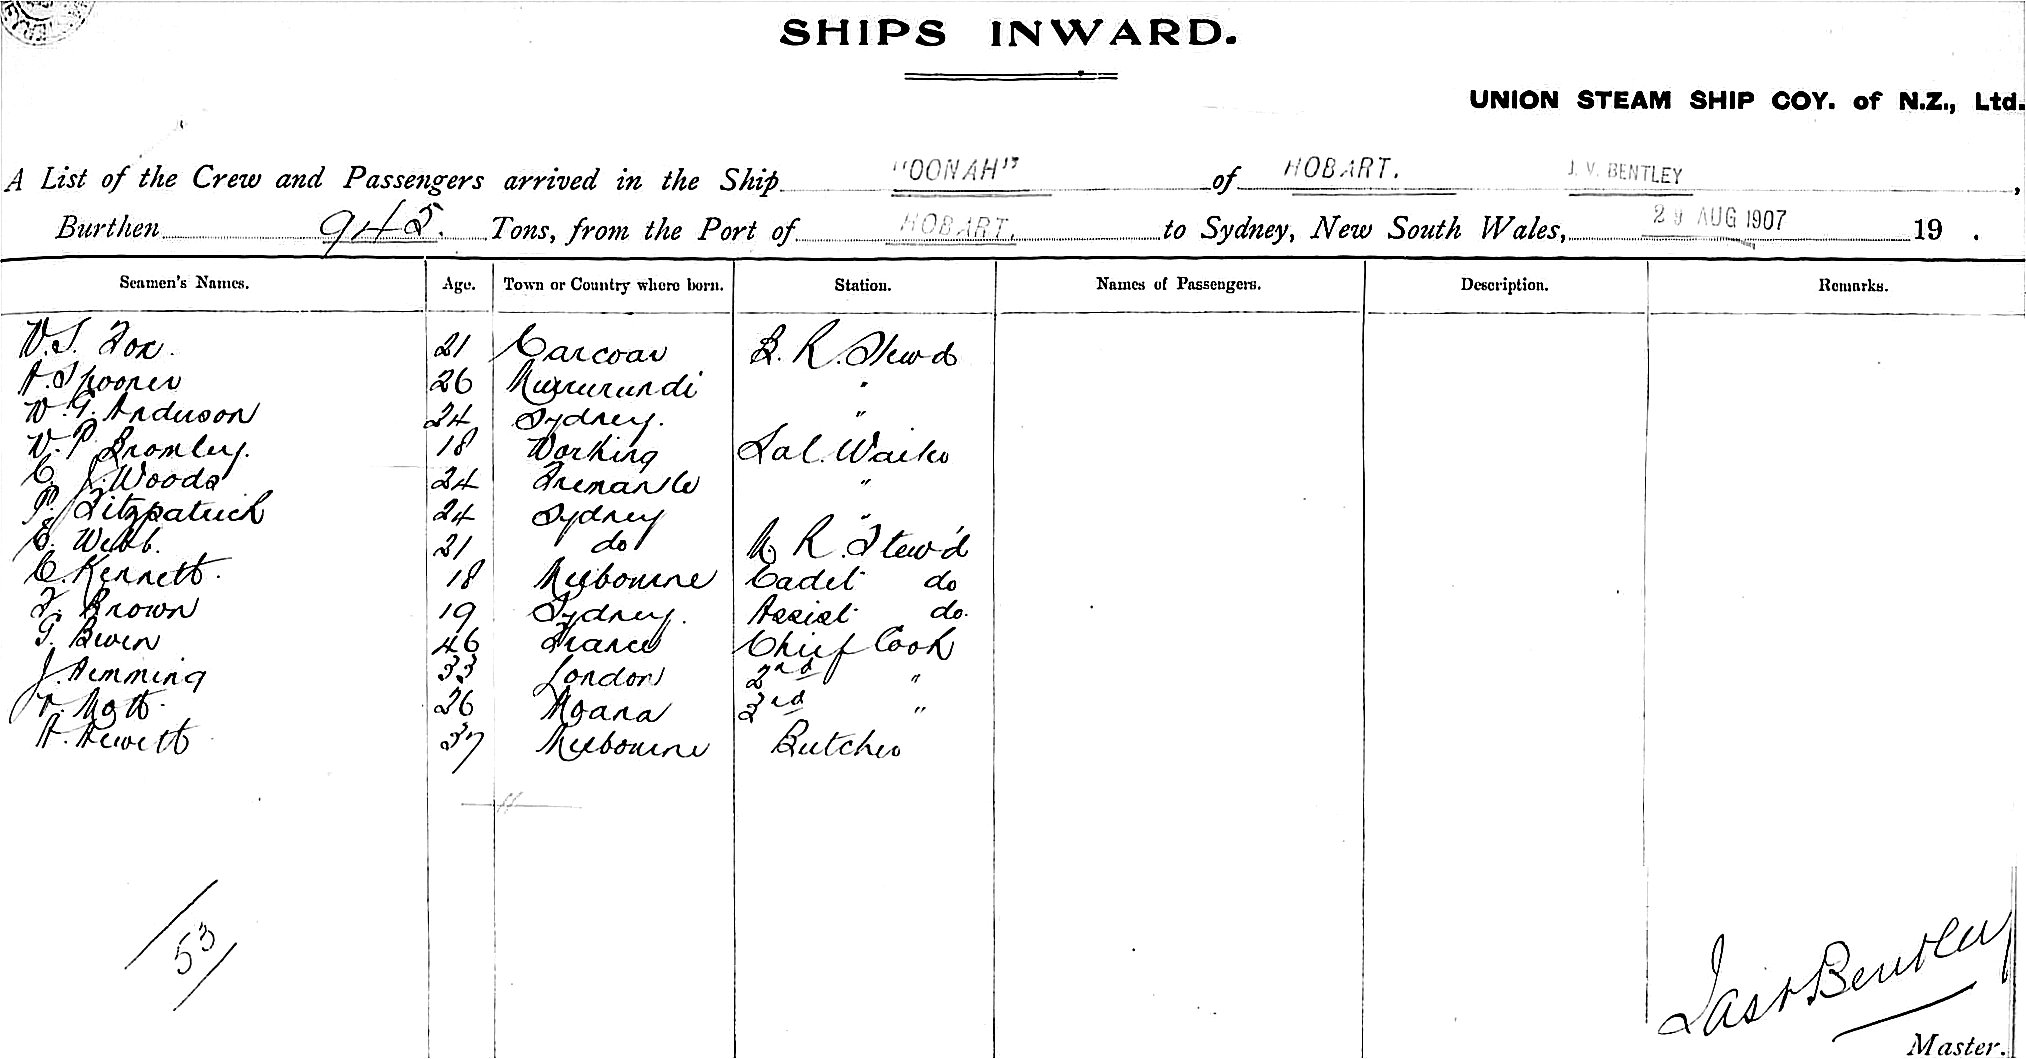 SHIPS INWARD.
UNION STEAM SHIP COY. of N.Z., Ltd.
A List of the Crew and Passengers arrived in the Ship "OONAH" of HOBART. J. V. BENTLEY,
Burthen 945. Tons, from the Port of HOBART. to Sydney, New South Wales, 29 AUG 1907 19 .
Seamen's Names. Age. Town or Country where born. Station. Names of Passengers. Description. Remarks.
W. S. Fox. 21 Carcoar B. R. Stewd
A. Spooner 26 Murrurundi "
W. G. Anderson 24 Sydney. "
W. P. Bromley. 18 Working Sal. Waiter
C. J. Woods 24 Fremantle "
P. Fitzpatrick 24 Sydney "
E. Webb. 21 do M. R. Stew'd
C. Kennett. 18 Melbourne Cadet do
F. Brown 19 Sydney. Assist do.
G. Bwen 46 France Chief Cook
J. Hemming 33 London 2nd "
Mott. 26 Moana 3rd "
A. Hewett 37 Melbourne Butcher
53
Jas V Bentley
Master.